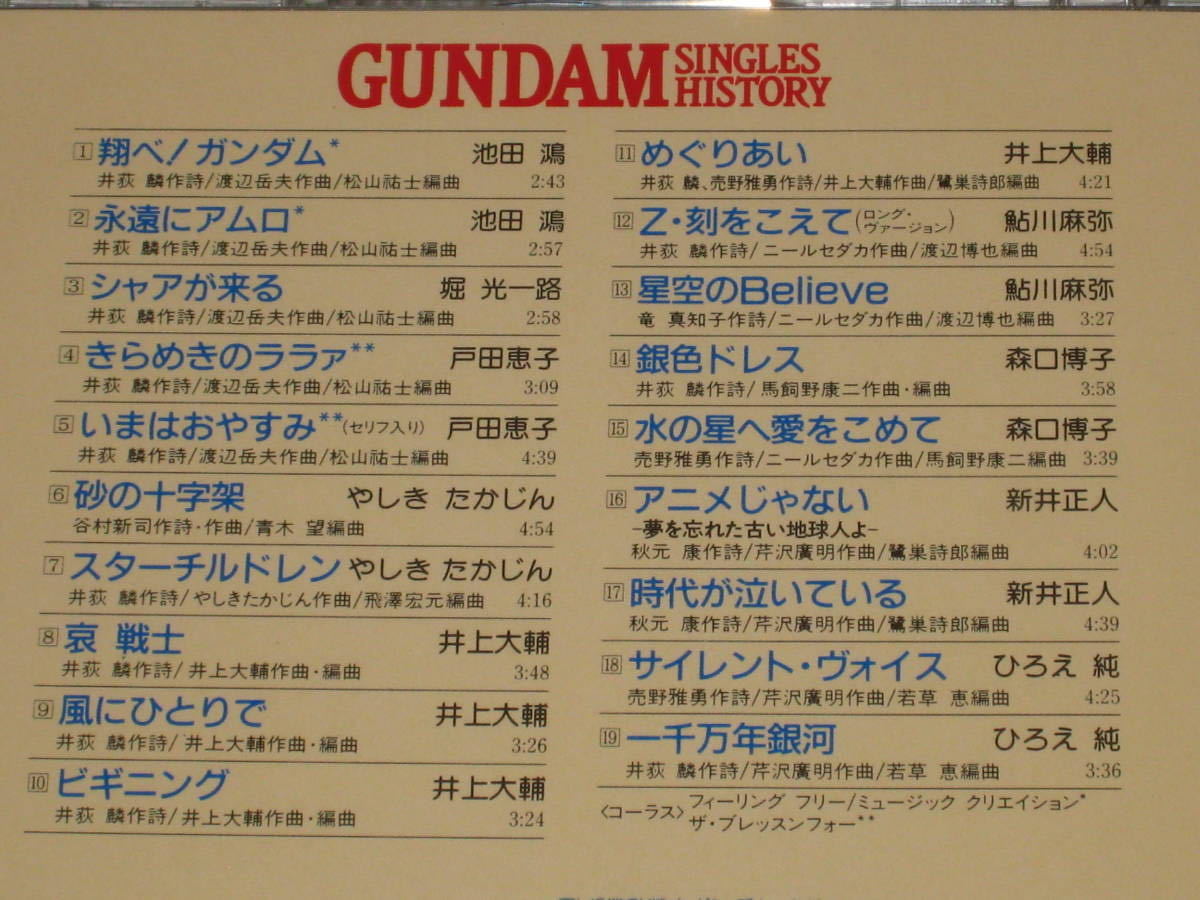 GUNDAM SINGLES HISTORY
1 翔べ!ガンダム* 池田 鴻
井荻 麟作詩/渡辺岳夫作曲/松山祐士編曲 2:43
2 永遠にアムロ* 池田 鴻
井荻 麟作詩/渡辺岳夫作曲/松山祐士編曲 2:57
3 シャアが来る 堀 光一路
井荻 麟作詩/渡辺岳夫作曲/松山祐士編曲 2:58
4 きらめきのララァ** 戸田恵子
井荻 麟作詩/渡辺岳夫作曲/松山祐士編曲 3:09
5 いまはおやすみ**(セリフ入り) 戸田恵子
井荻 麟作詩/渡辺岳夫作曲/松山祐士編曲 4:39
6 砂の十字架 やしき たかじん
谷村新司作詩・作曲/青木 望編曲 4:54
7 スターチルドレン やしき たかじん
井荻 麟作詩/やしきたかじん作曲/飛澤宏元編曲 4:16
8 哀 戦士 井上大輔
井荻 麟作詩/井上大輔作曲・編曲 3:48
9 風にひとりで 井上大輔
井荻 麟作詩/井上大輔作曲・編曲 3:26
10 ビギニング 井上大輔
井荻 麟作詩/井上大輔作曲・編曲 3:24
11 めぐりあい 井上大輔
井荻 麟、売野雅勇作詩/井上大輔作曲/鷺巣詩郎編曲 4:21
12 Z・刻をこえて(ロング・ヴァージョン) 鮎川麻弥
井荻 麟作詩/ニールセダカ作曲/渡辺博也編曲 4:54
13 星空のBelieve 鮎川麻弥
竜 真知子作詩/ニールセダカ作曲/渡辺博也編曲 3:27
14 銀色ドレス 森口博子
井荻 麟作詩/馬飼野康二作曲・編曲 3:58
15 水の星へ愛をこめて 森口博子
売野雅勇作詩/ニールセダカ作曲/馬飼野康二編曲 3:39
16 アニメじゃない 新井正人
-夢を忘れた古い地球人よ-
秋元 康作詩/芹沢廣明作曲/鷺巣詩郎編曲 4:02
17 時代が泣いている 新井正人
秋元 康作詩/芹沢廣明作曲/鷺巣詩郎編曲 4:39
18 サイレント・ヴォイス ひろえ 純
売野雅勇作詩/芹沢廣明作曲/若草 恵編曲 4:25
19 一千万年銀河 ひろえ 純
井荻 麟作詩/芹沢廣明作曲/若草 恵編曲 3:36
〈コーラス〉フィーリング フリー/ミュージック クリエイション*
ザ・ブレッスンフォー**